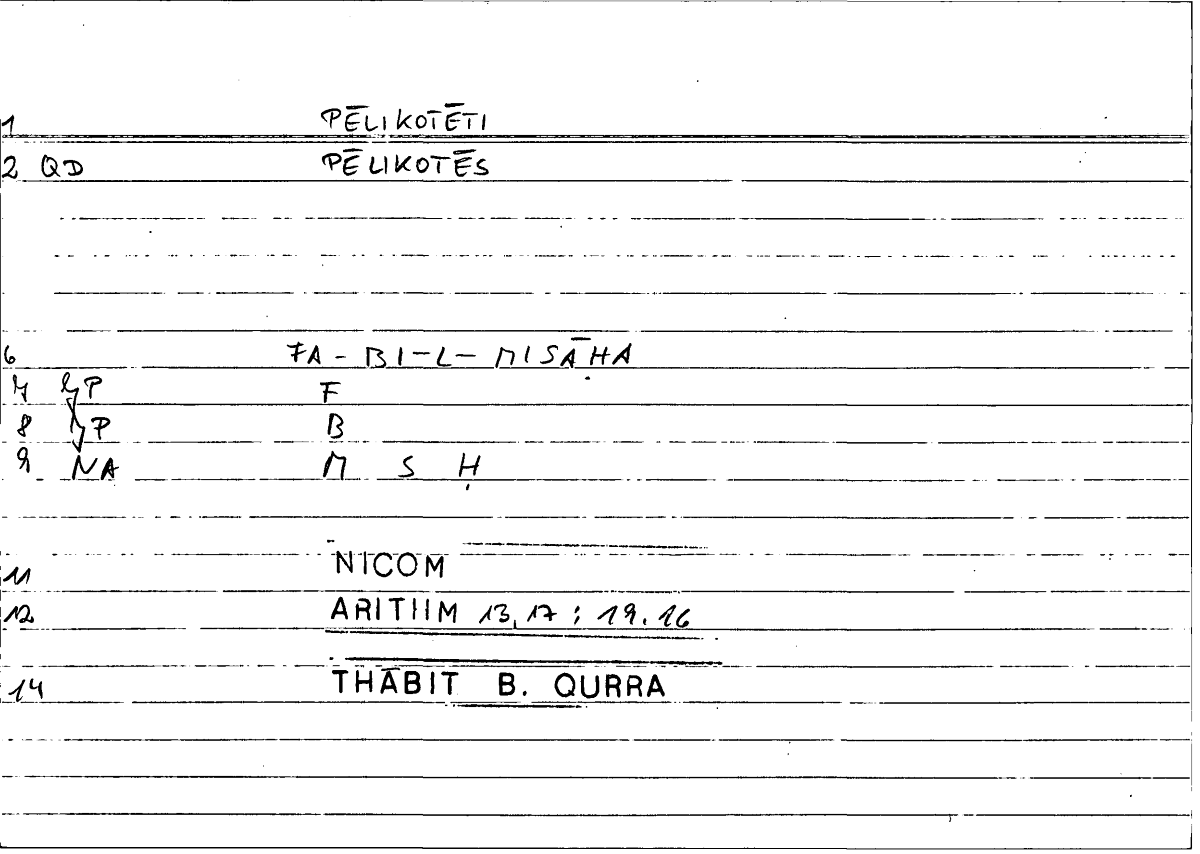 1 PĒLIKOTĒTI
2 QD PĒLIKOTĒS
6 FA - BI-L- MISĀḤA
7 P F
8 P B
9 NA M S Ḥ
11 NICOM
12 ARITHM 13,17 ; 19.16
14 THĀBIT B. QURRA